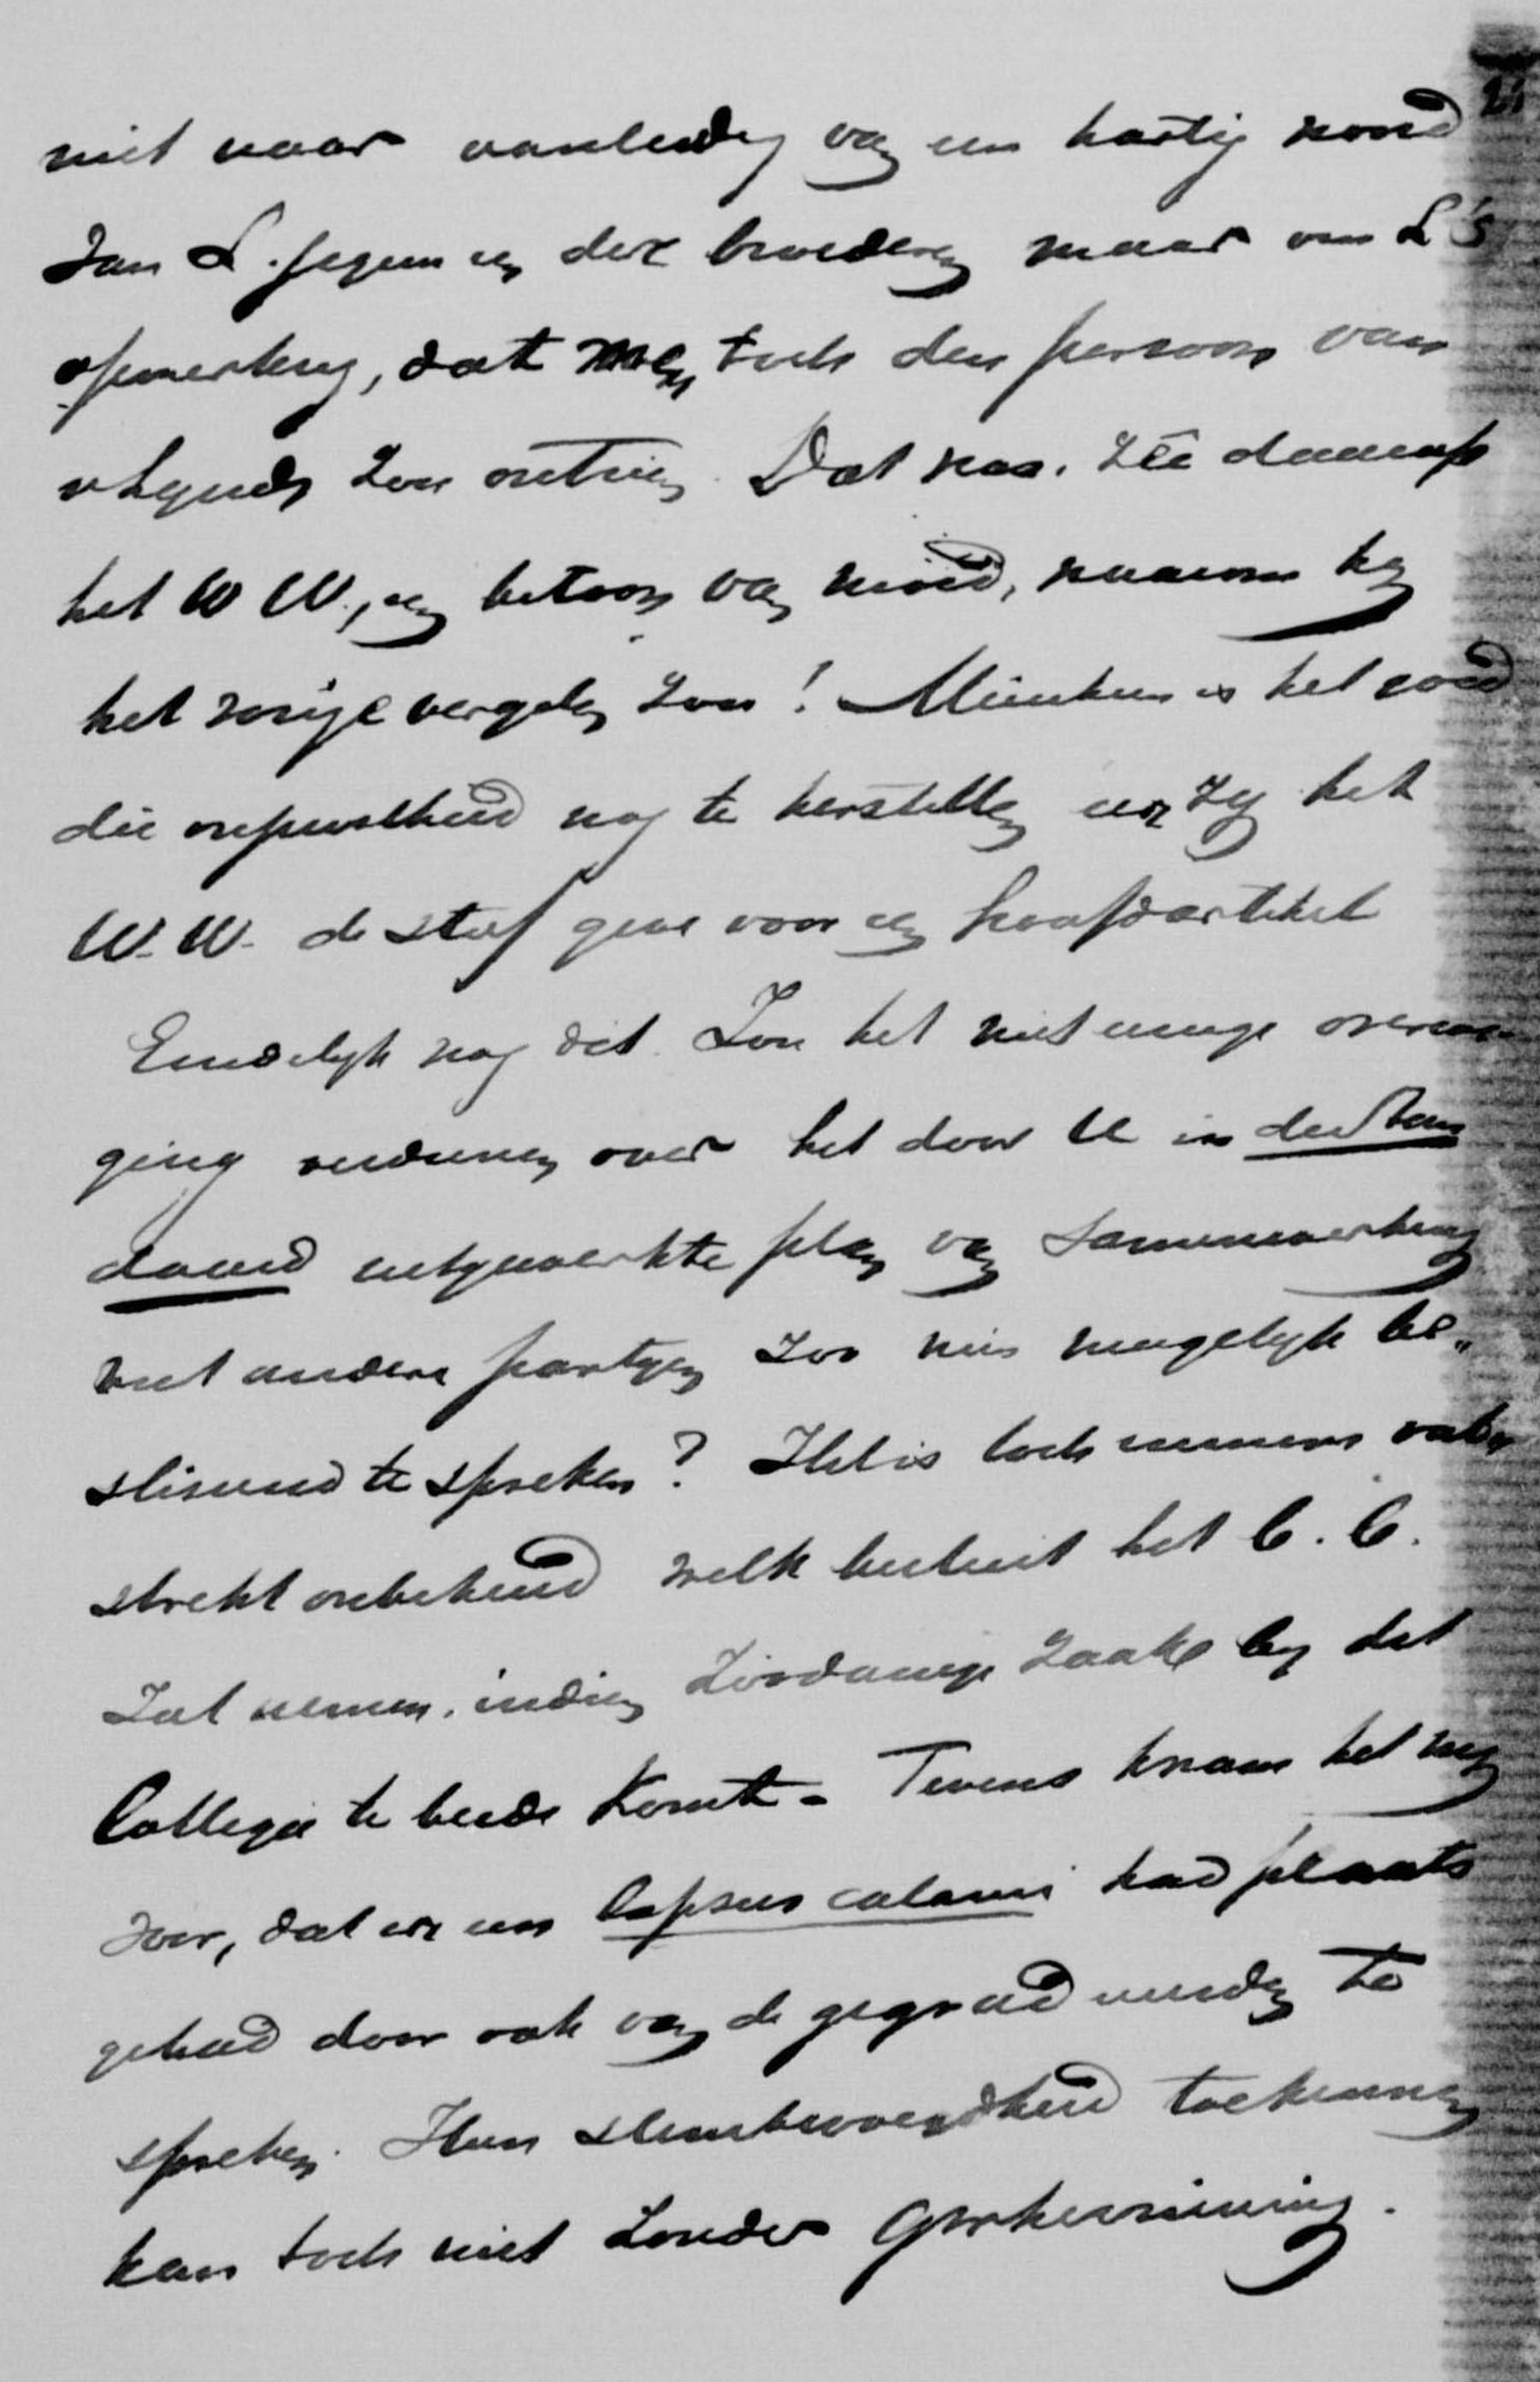 niet naar aanleiding van een hartig woord
van L. jegens een der broederen maar om L's
opmerking, dat men toch den persoon van
zou ontzien. Dat was, zei daarop
het W W., een betoon van moed, waarom hij
het vorige vergeten zou! Misschien is het goed
die onjuistheid nog te herstellen eer zij het
W. W. de stof geve voor een hoofdartikel
Eindelijk nog dit. Zou het niet eenige overwe-
ging verdienen over het door U in de Stan
daard uitgewerkte plan van samenwerking
met andere partijen zoo min mogelijk be-
slissend te spreken? Het is toch immers vol
strekt onbekend welk besluit het C. C.
zal nemen, indien zoodanige zaak bij dat
Collegie te berde komt. Tevens kwam het mij
voor, dat er een lapsus calami had plaats
gehad door ook van de gegradueerden te
spreken. Hun stembevoegdheid toekennen
kan toch niet zonder Grwherziening.